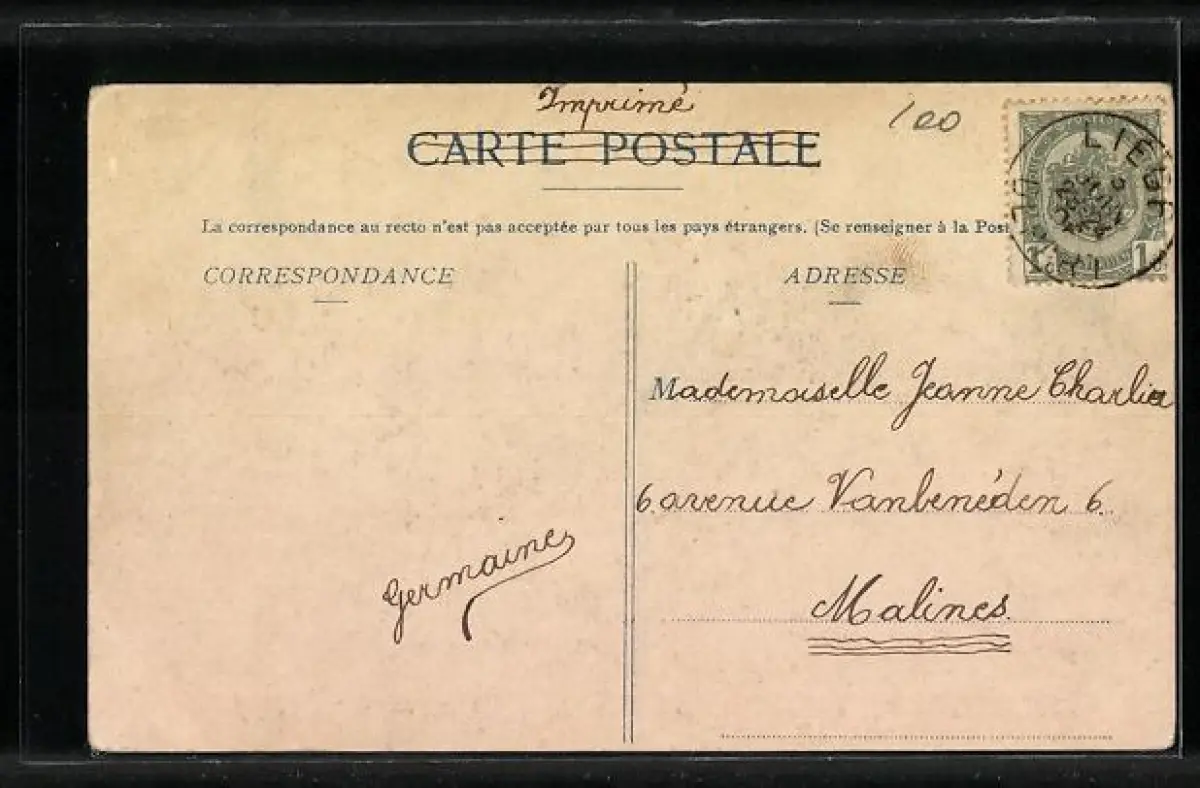 Imprimé
CARTE POSTALE
100
La correspondance au recto n'est pas acceptée par tous les pays étrangers. (Se renseigner à la Post
CORRESPONDANCE
ADRESSE
LIÉGE
1 1
Mademoiselle Jeanne Charlier
6 avenue Vanbenéden 6.
Malines.
Germaine